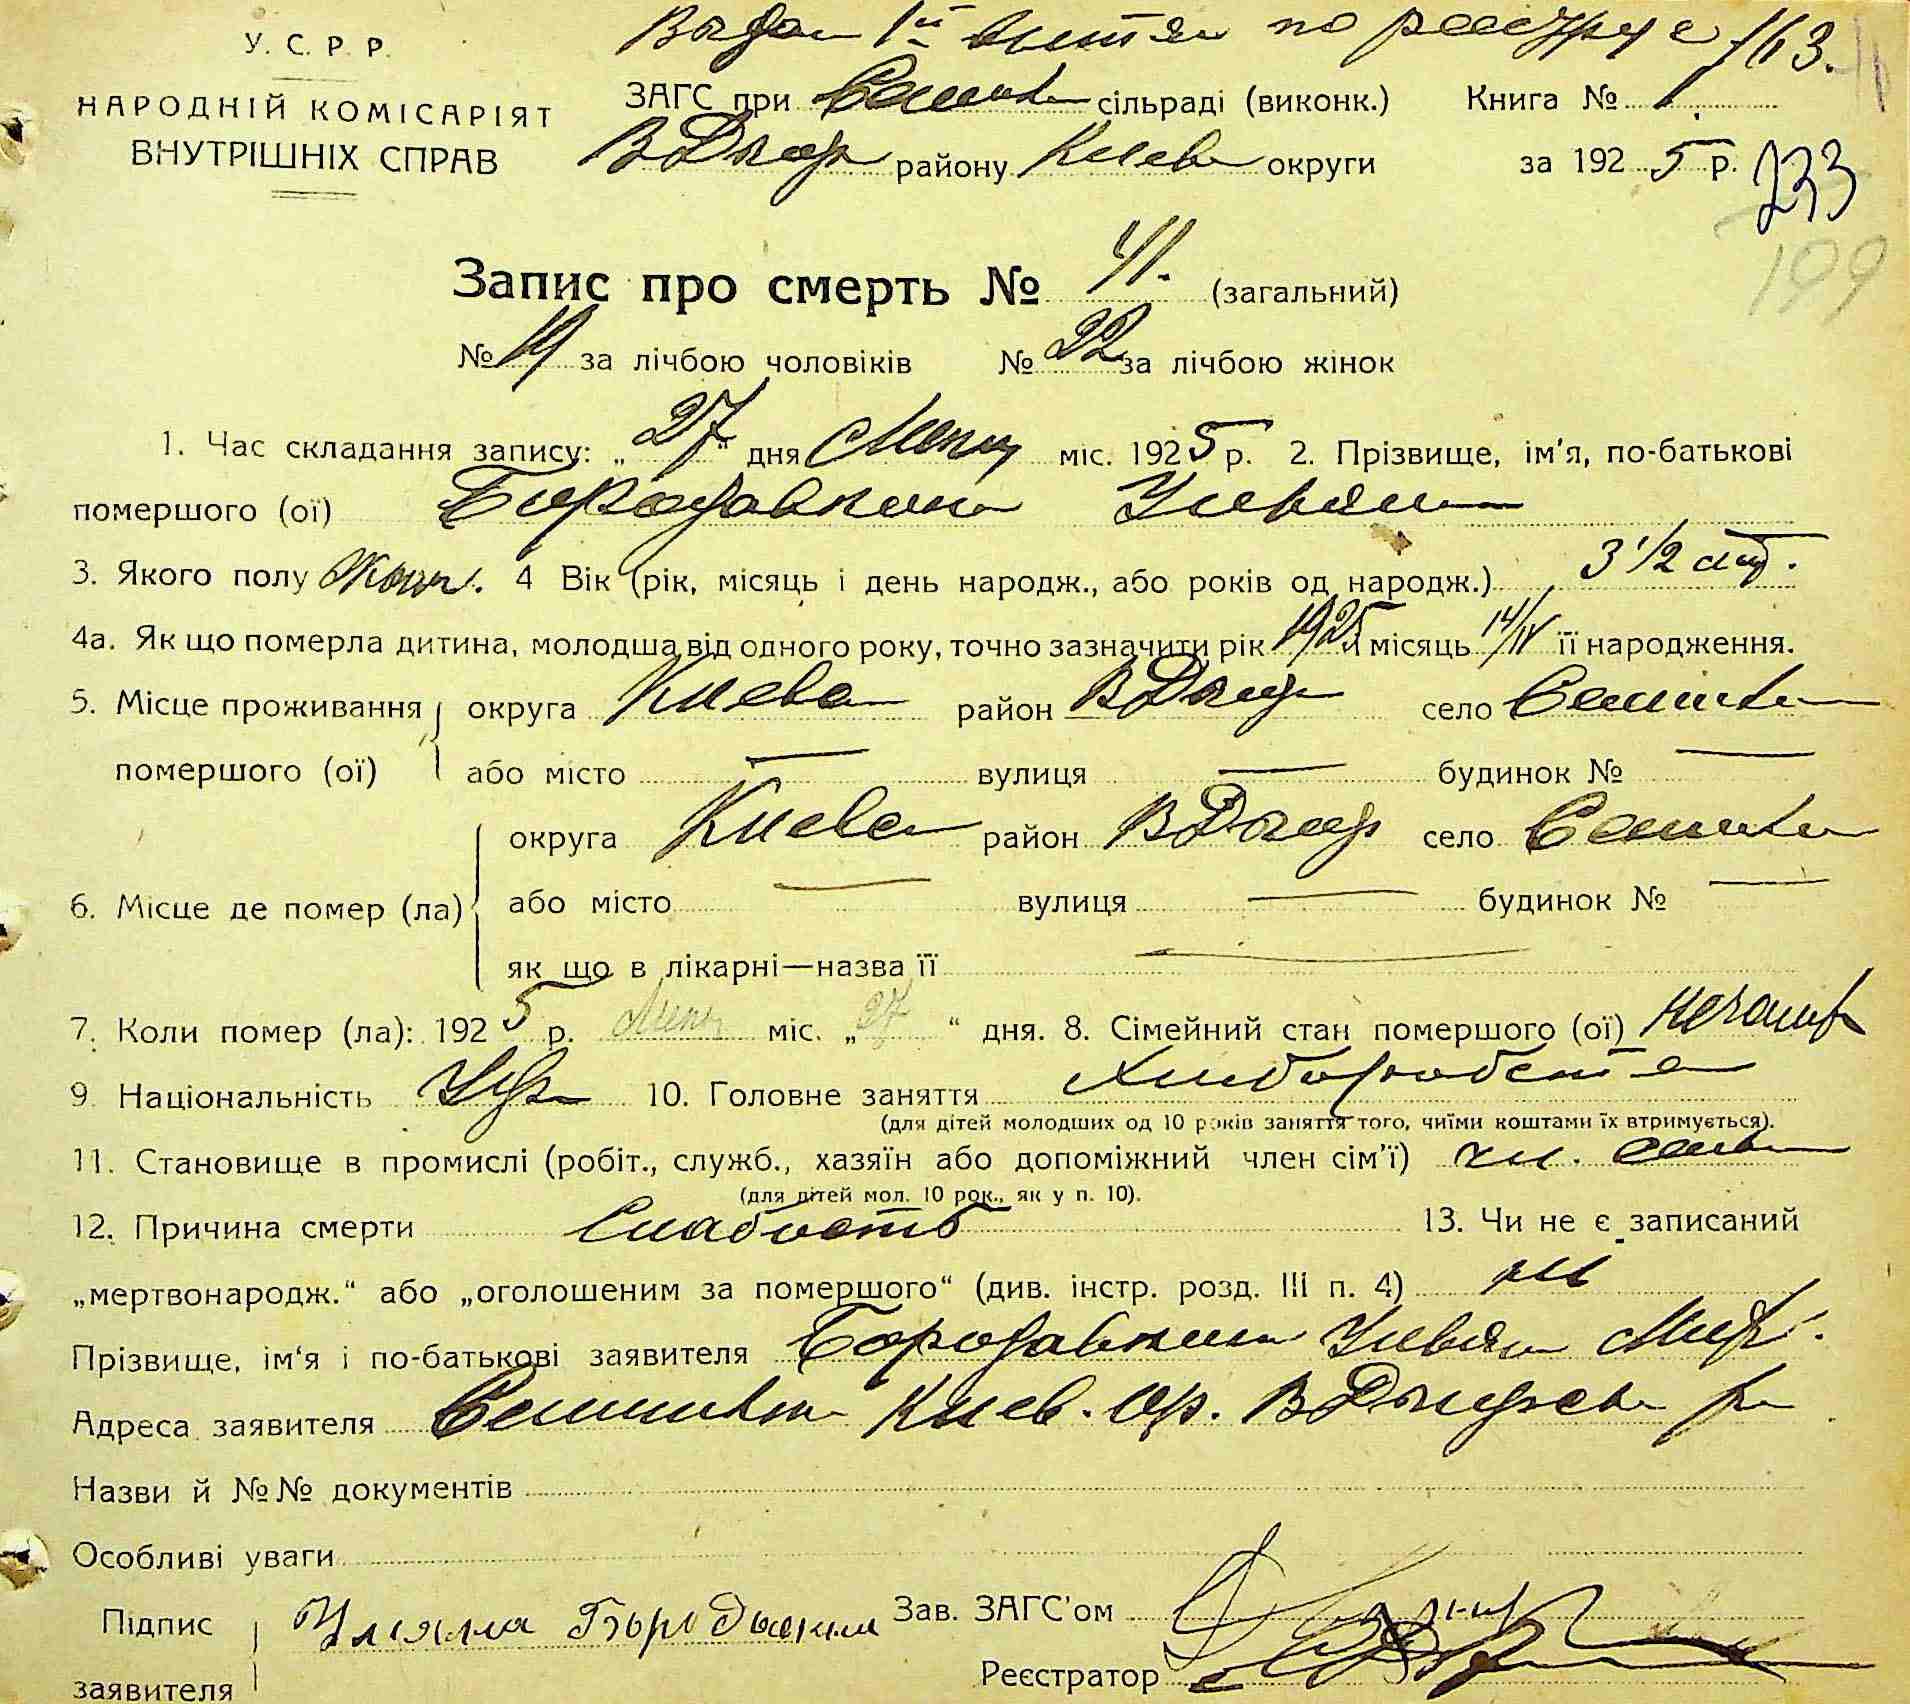 У. С. Р. Р.
НАРОДНІЙ КОМІСАРІЯТ
ВНУТРІШНІХ СПРАВ
по реестру 163.
ЗАГС при сільраді (виконк.) Книга № 1
району Киев округи за 1925 р. 233
199
Запис про смерть № 41. (загальний)
№ 19 за лічбою чоловіків № 22 за лічбою жінок
1. Час складання запису: „27“ дня Липц міс. 1925 р. 2. Прізвище, ім'я, по-батькові
помершого (ої) Бородавкина Ульяна
3. Якого полу Жоны. 4 Вік (рік, місяць і день народж., або років од народж.) 3 1/2
4а. Як що померла дитина, молодша від одного року, точно зазначити рік 1925 місяць 14/IV її народження.
5. Місце проживання округа Киева район ВДымер село
помершого (ої) або місто — вулиця — будинок № —
округа Киева район ВДымер село
6. Місце де помер (ла) або місто — вулиця — будинок № —
як що в лікарні—назва її —
7. Коли помер (ла): 1925 р. Липц міс. „27“ дня. 8. Сімейний стан помершого (ої)
9 Національність Укр 10. Головне заняття Хлиборобство
(для дітей молодших од 10 років заняття того, чиїми коштами їх втримується).
11. Становище в промислі (робіт., служб., хазяїн або допоміжний член сім'ї) чл. семьи
(для дітей мол. 10 рок., як у п. 10).
12. Причина смерти Слабость 13. Чи не є записаний
„мертвонародж.“ або „оголошеним за помершого“ (див. інстр. розд. III п. 4) ні
Прізвище, ім'я і по-батькові заявителя Бородавкина Ульяна
Адреса заявителя Киев. Окр. р
Назви й №№ документів
Особливі уваги
Підпис Зав. ЗАГС'ом
заявителя Реєстратор